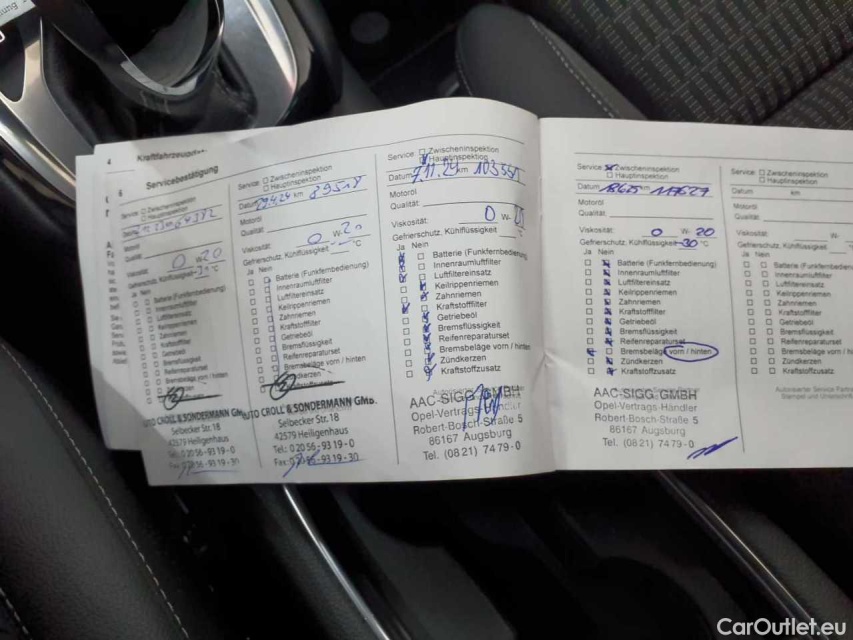 4 Kraftfahrzeug
6
Servicebestätigung
Service: Zwischeninspektion
Hauptinspektion
Datum 64382
Motoröl
Qualität:
Viskosität: 0 W-20
Gefrierschutz, Kühlflüssigkeit °C
Ja Nein
Batterie (Funkfernbedienung)
Innenraumluftfilter
Luftfiltereinsatz
Keilrippenriemen
Zahnriemen
Kraftstofffilter
Getriebeöl
Bremsflüssigkeit
Reifenreparaturset
Bremsbeläge vorn / hinten
AUTO CROLL & SONDERMANN GmbH
Selbecker Str. 18
42579 Heiligenhaus
Tel.: 0 20 56 - 93 19 - 0
Fax: 0 20 56 - 93 19 - 30
Service: Zwischeninspektion
Hauptinspektion
Datum 29.4.24 km 89518
Motoröl
Qualität:
Viskosität: 0 W-20
Gefrierschutz, Kühlflüssigkeit: °C
Ja Nein
Batterie (Funkfernbedienung)
Innenraumluftfilter
Luftfiltereinsatz
Keilrippenriemen
Zahnriemen
Kraftstofffilter
Getriebeöl
Bremsflüssigkeit
Reifenreparaturset
Bremsbeläge vorn / hinten
Zündkerzen
Kraftstoffzusatz
AUTO CROLL & SONDERMANN GmbH
Selbecker Str. 18
42579 Heiligenhaus
Tel.: 0 20 56 - 93 19 - 0
Fax: 0 20 56 - 93 19 - 30
Service: Zwischeninspektion
Hauptinspektion
Datum 7.11.24 km 103551
Motoröl
Qualität:
Viskosität: 0 W-
Gefrierschutz, Kühlflüssigkeit: °C
Ja Nein
Batterie (Funkfernbedienung)
Innenraumluftfilter
Luftfiltereinsatz
Keilrippenriemen
Zahnriemen
Kraftstofffilter
Getriebeöl
Bremsflüssigkeit
Reifenreparaturset
Bremsbeläge vorn / hinten
Zündkerzen
Kraftstoffzusatz
AAC-SIGG GMBH
Opel-Vertrags-Händler
Robert-Bosch-Straße 5
86167 Augsburg
Tel. (08 21) 74 79-0
Service: Zwischeninspektion
Hauptinspektion
Datum 18.6.25 km 117627
Motoröl
Qualität:
Viskosität: 0 W- 20
Gefrierschutz, Kühlflüssigkeit: -30 °C
Ja Nein
Batterie (Funkfernbedienung)
Innenraumluftfilter
Luftfiltereinsatz
Keilrippenriemen
Zahnriemen
Kraftstofffilter
Getriebeöl
Bremsflüssigkeit
Reifenreparaturset
Bremsbeläge vorn / hinten
Zündkerzen
Kraftstoffzusatz
AAC-SIGG GMBH
Opel-Vertrags-Händler
Robert-Bosch-Straße 5
86167 Augsburg
Tel. (08 21) 74 79-0
Service: Zwischeninspektion
Hauptinspektion
Datum km
Motoröl
Qualität:
Viskosität: W-
Gefrierschutz, Kühlflüssigkeit:
Ja Nein
Batterie (Funkfernbedienung)
Innenraumluftfilter
Luftfiltereinsatz
Keilrippenriemen
Zahnriemen
Kraftstofffilter
Getriebeöl
Bremsflüssigkeit
Reifenreparaturset
Bremsbeläge vorn / hinten
Zündkerzen
Kraftstoffzusatz
Autorisierter Service Partner
Stempel und Unterschrift
CarOutlet.eu